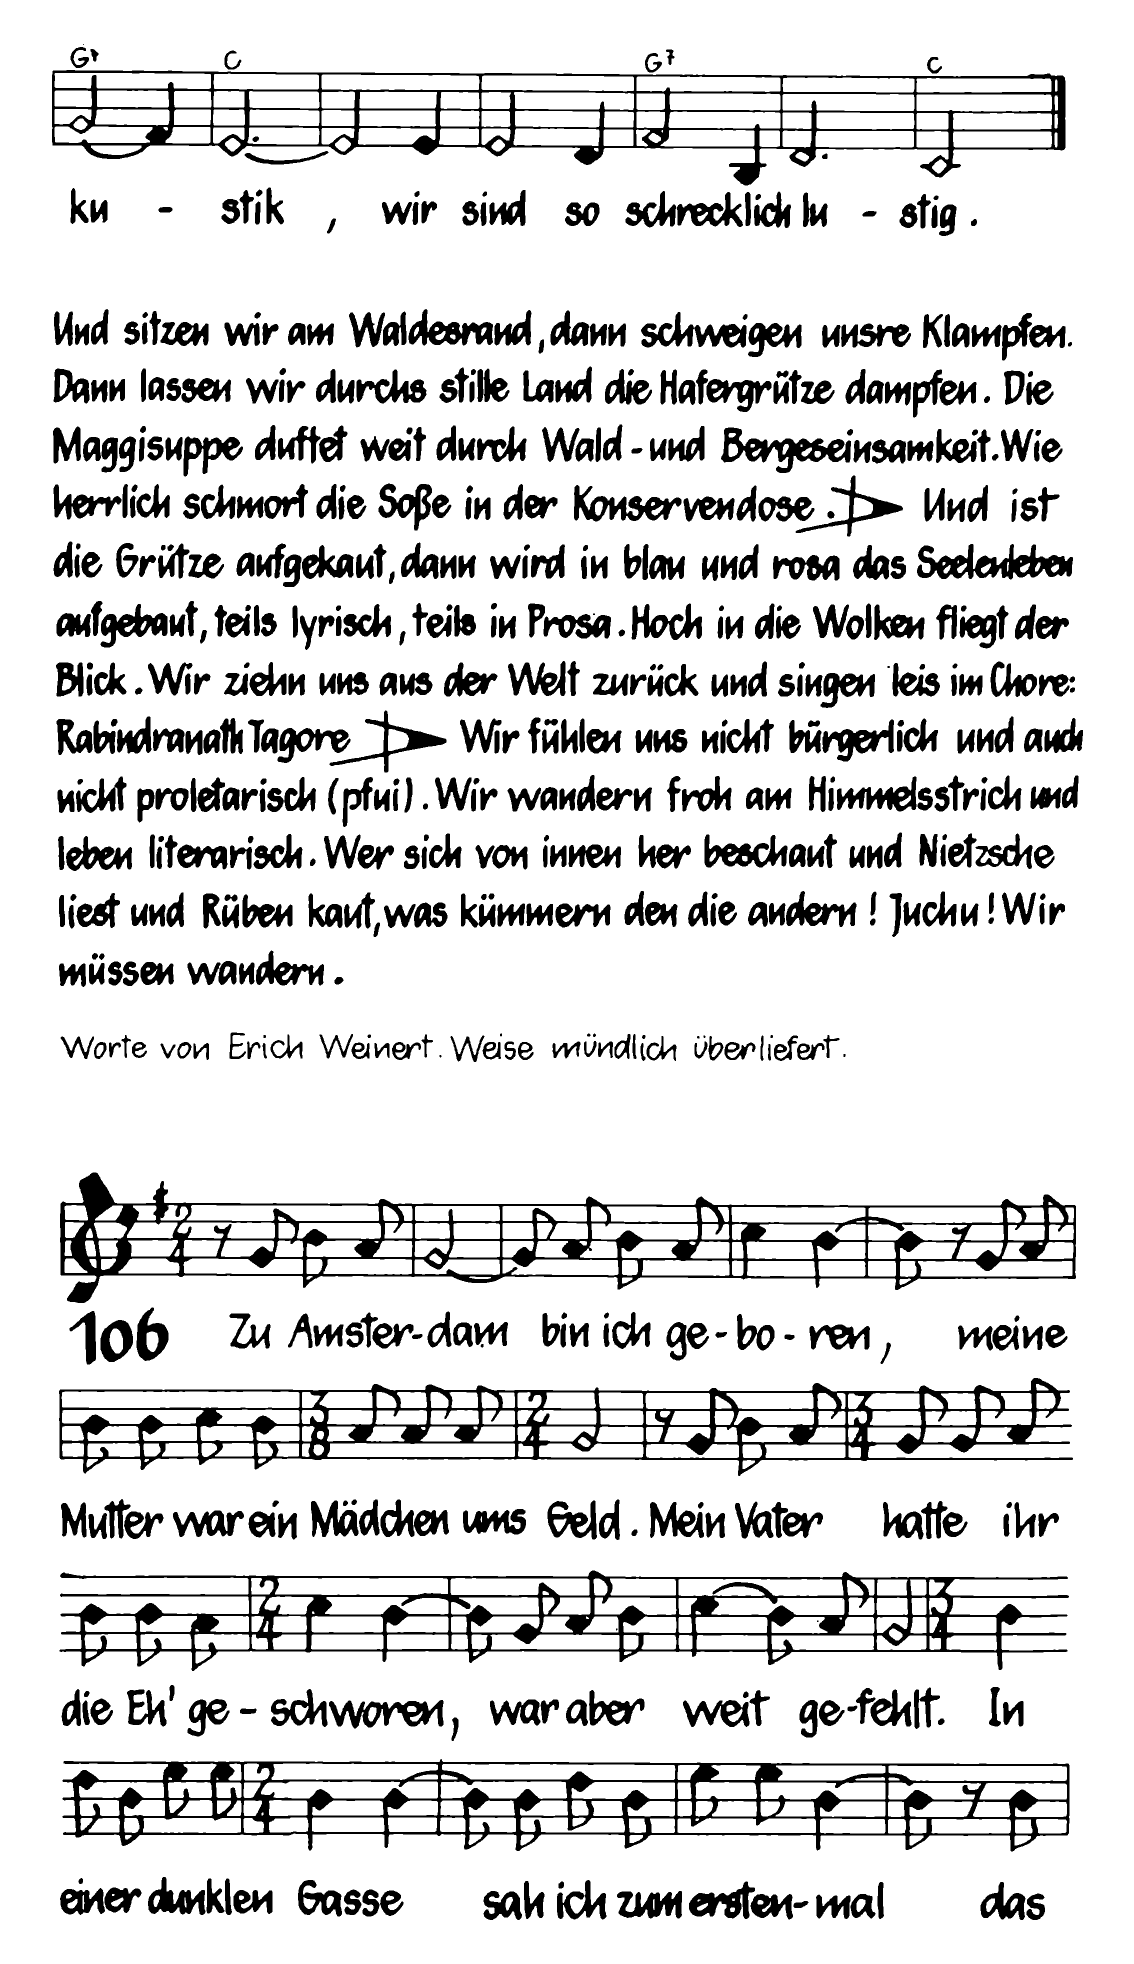 G7 C G7 C
ku - stik , wir sind so schrecklich lu - stig .
Und sitzen wir am Waldesrand, dann schweigen unsre Klampfen.
Dann lassen wir durchs stille Land die Hafergrütze dampfen. Die
Maggisuppe duftet weit durch Wald - und Bergeseinsamkeit. Wie
herrlich schmort die Soße in der Konservendose . Und ist
die Grütze aufgekaut, dann wird in blau und rosa das Seelenleben
aufgebaut, teils lyrisch, teils in Prosa. Hoch in die Wolken fliegt der
Blick. Wir ziehn uns aus der Welt zurück und singen leis im Chore:
Rabindranath Tagore Wir fühlen uns nicht bürgerlich und auch
nicht proletarisch (pfui). Wir wandern froh am Himmelsstrich und
leben literarisch. Wer sich von innen her beschaut und Nietzsche
liest und Rüben kaut, was kümmern den die andern! Juchu! Wir
müssen wandern.
Worte von Erich Weinert. Weise mündlich überliefert.
2/4
106 Zu Amster-dam bin ich ge-bo-ren, meine
3/8 2/4 3/4
Mutter war ein Mädchen ums Geld. Mein Vater hatte ihr
2/4 3/4
die Eh' ge - schworen, war aber weit ge-fehlt. In
2/4
einer dunklen Gasse sah ich zum ersten-mal das